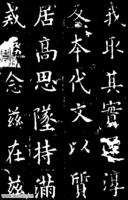 我取其實淳
反本代文以質
居高思墜持滿
戒念茲在茲